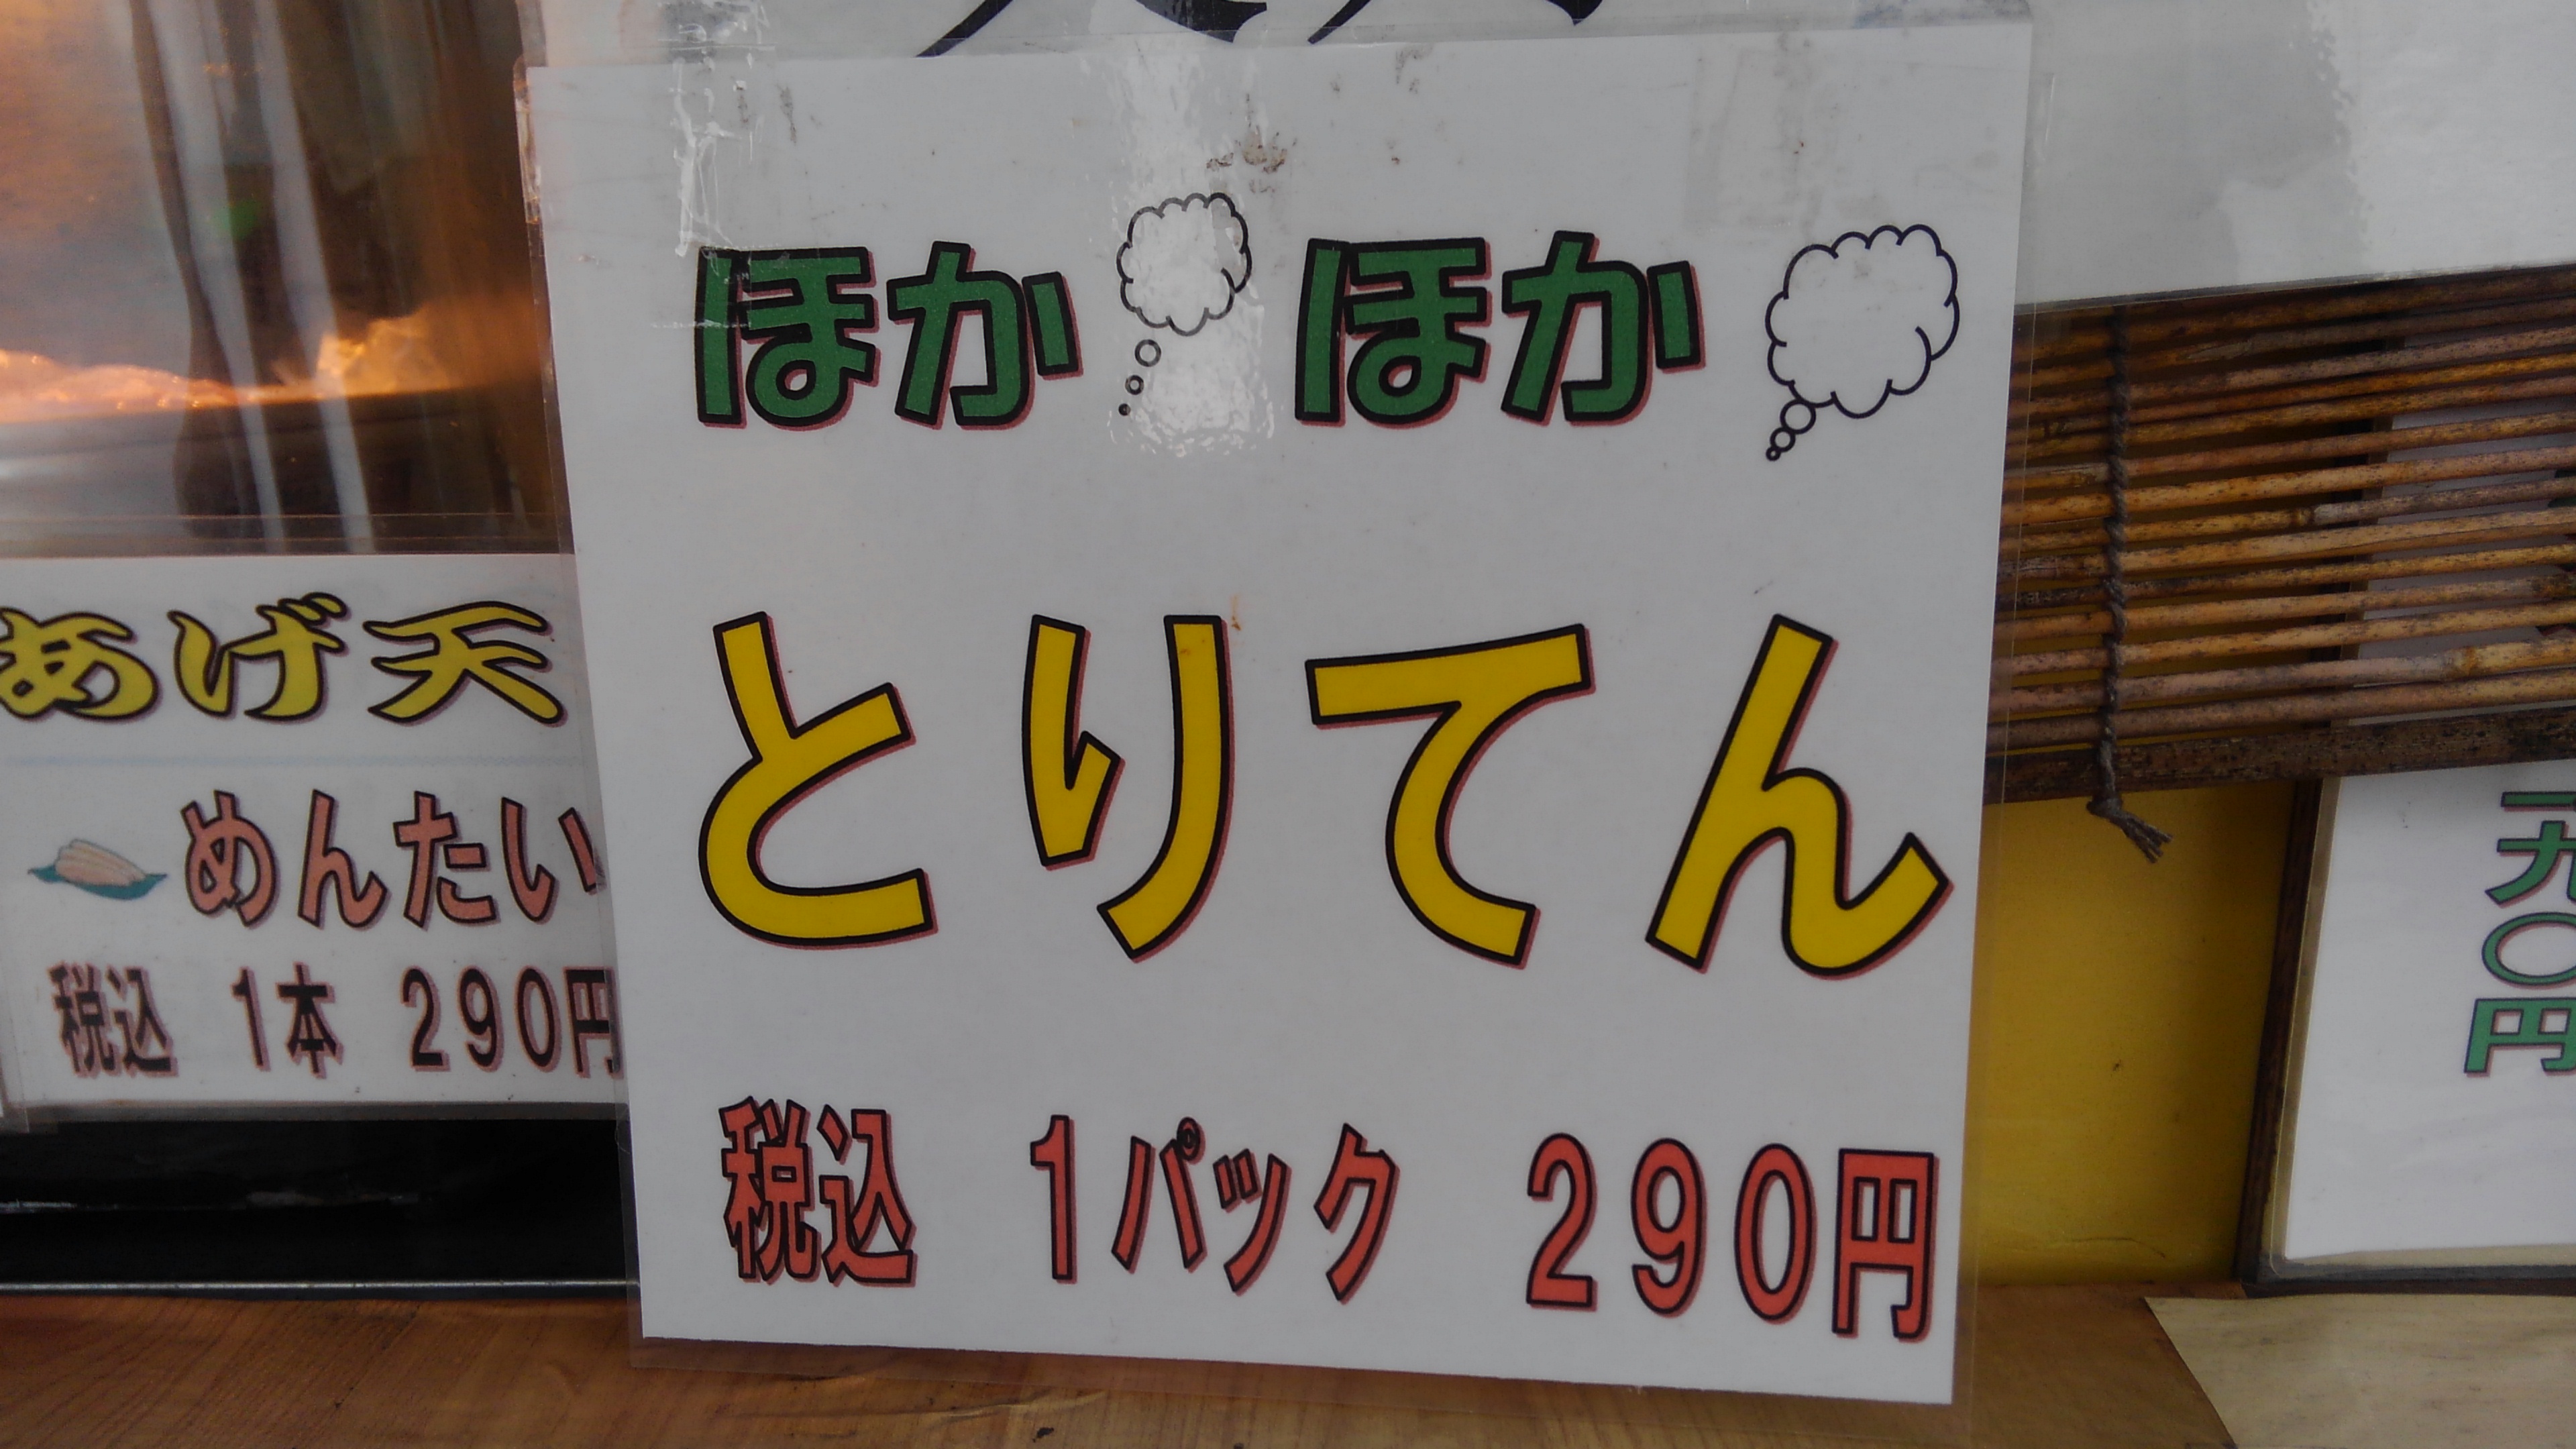 ほかほか
とりてん
税込 1パック 290円
あげ天
めんたい
税込 1本 290円
九〇円